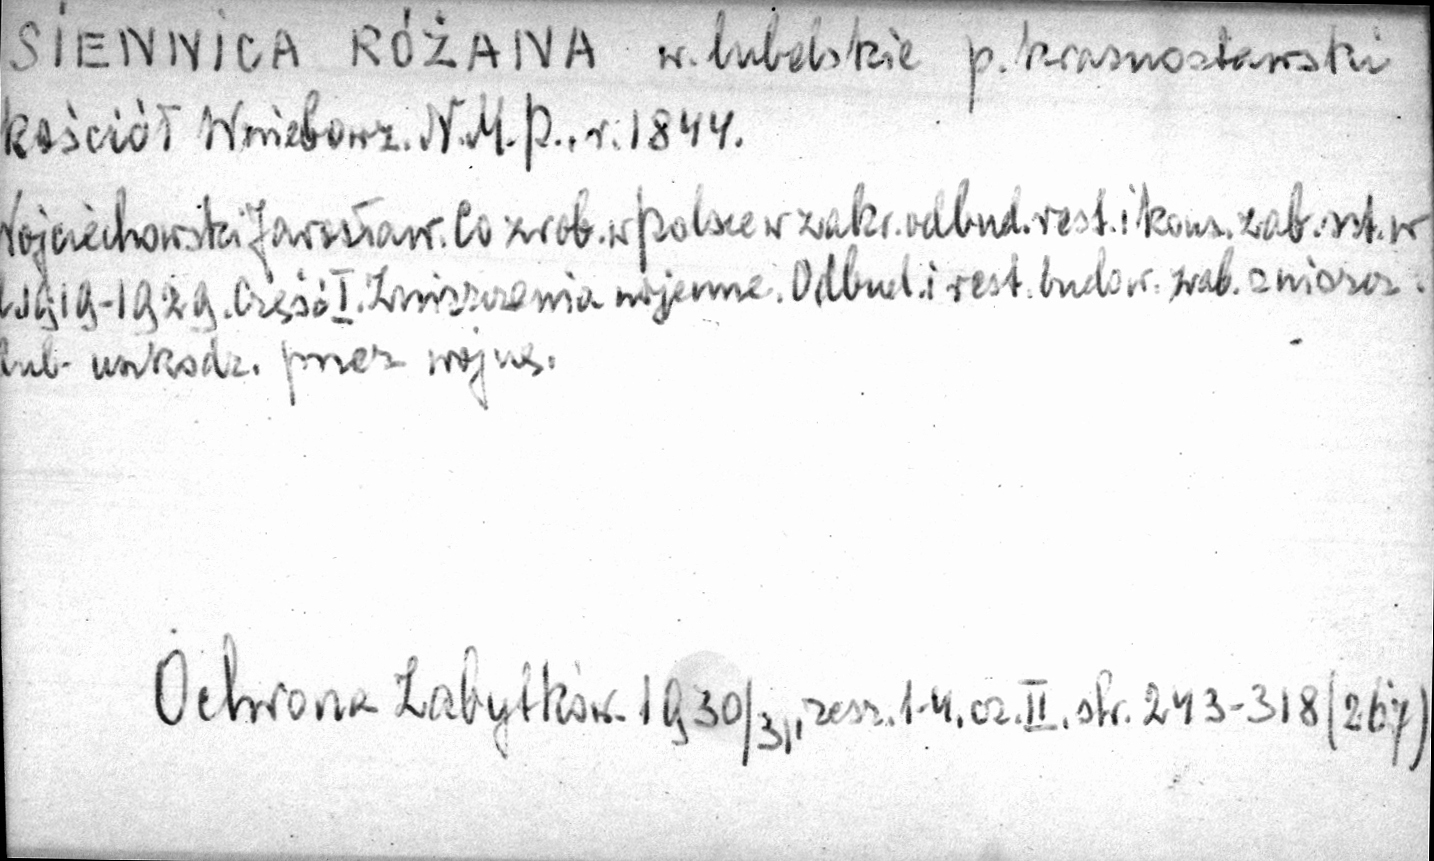 SIENNICA RÓŻANA w. lubelskie p. krasnostawski
kościół Wniebowz. N.M.P., r. 1844.
Wojciechowski Jarosław. Co zrob. w Polsce w zakr. odbud. rest. i kons. zab. szt. w
l. 1919-1929. Część I. Zniszczenia wojenne. Odbud. i rest. budow. zab. zniszcz.
lub uszkodz. przez wojnę.
Ochrona Zabytków 1930/31, zesz. 1-4, cz. II, str. 243-318 (267)